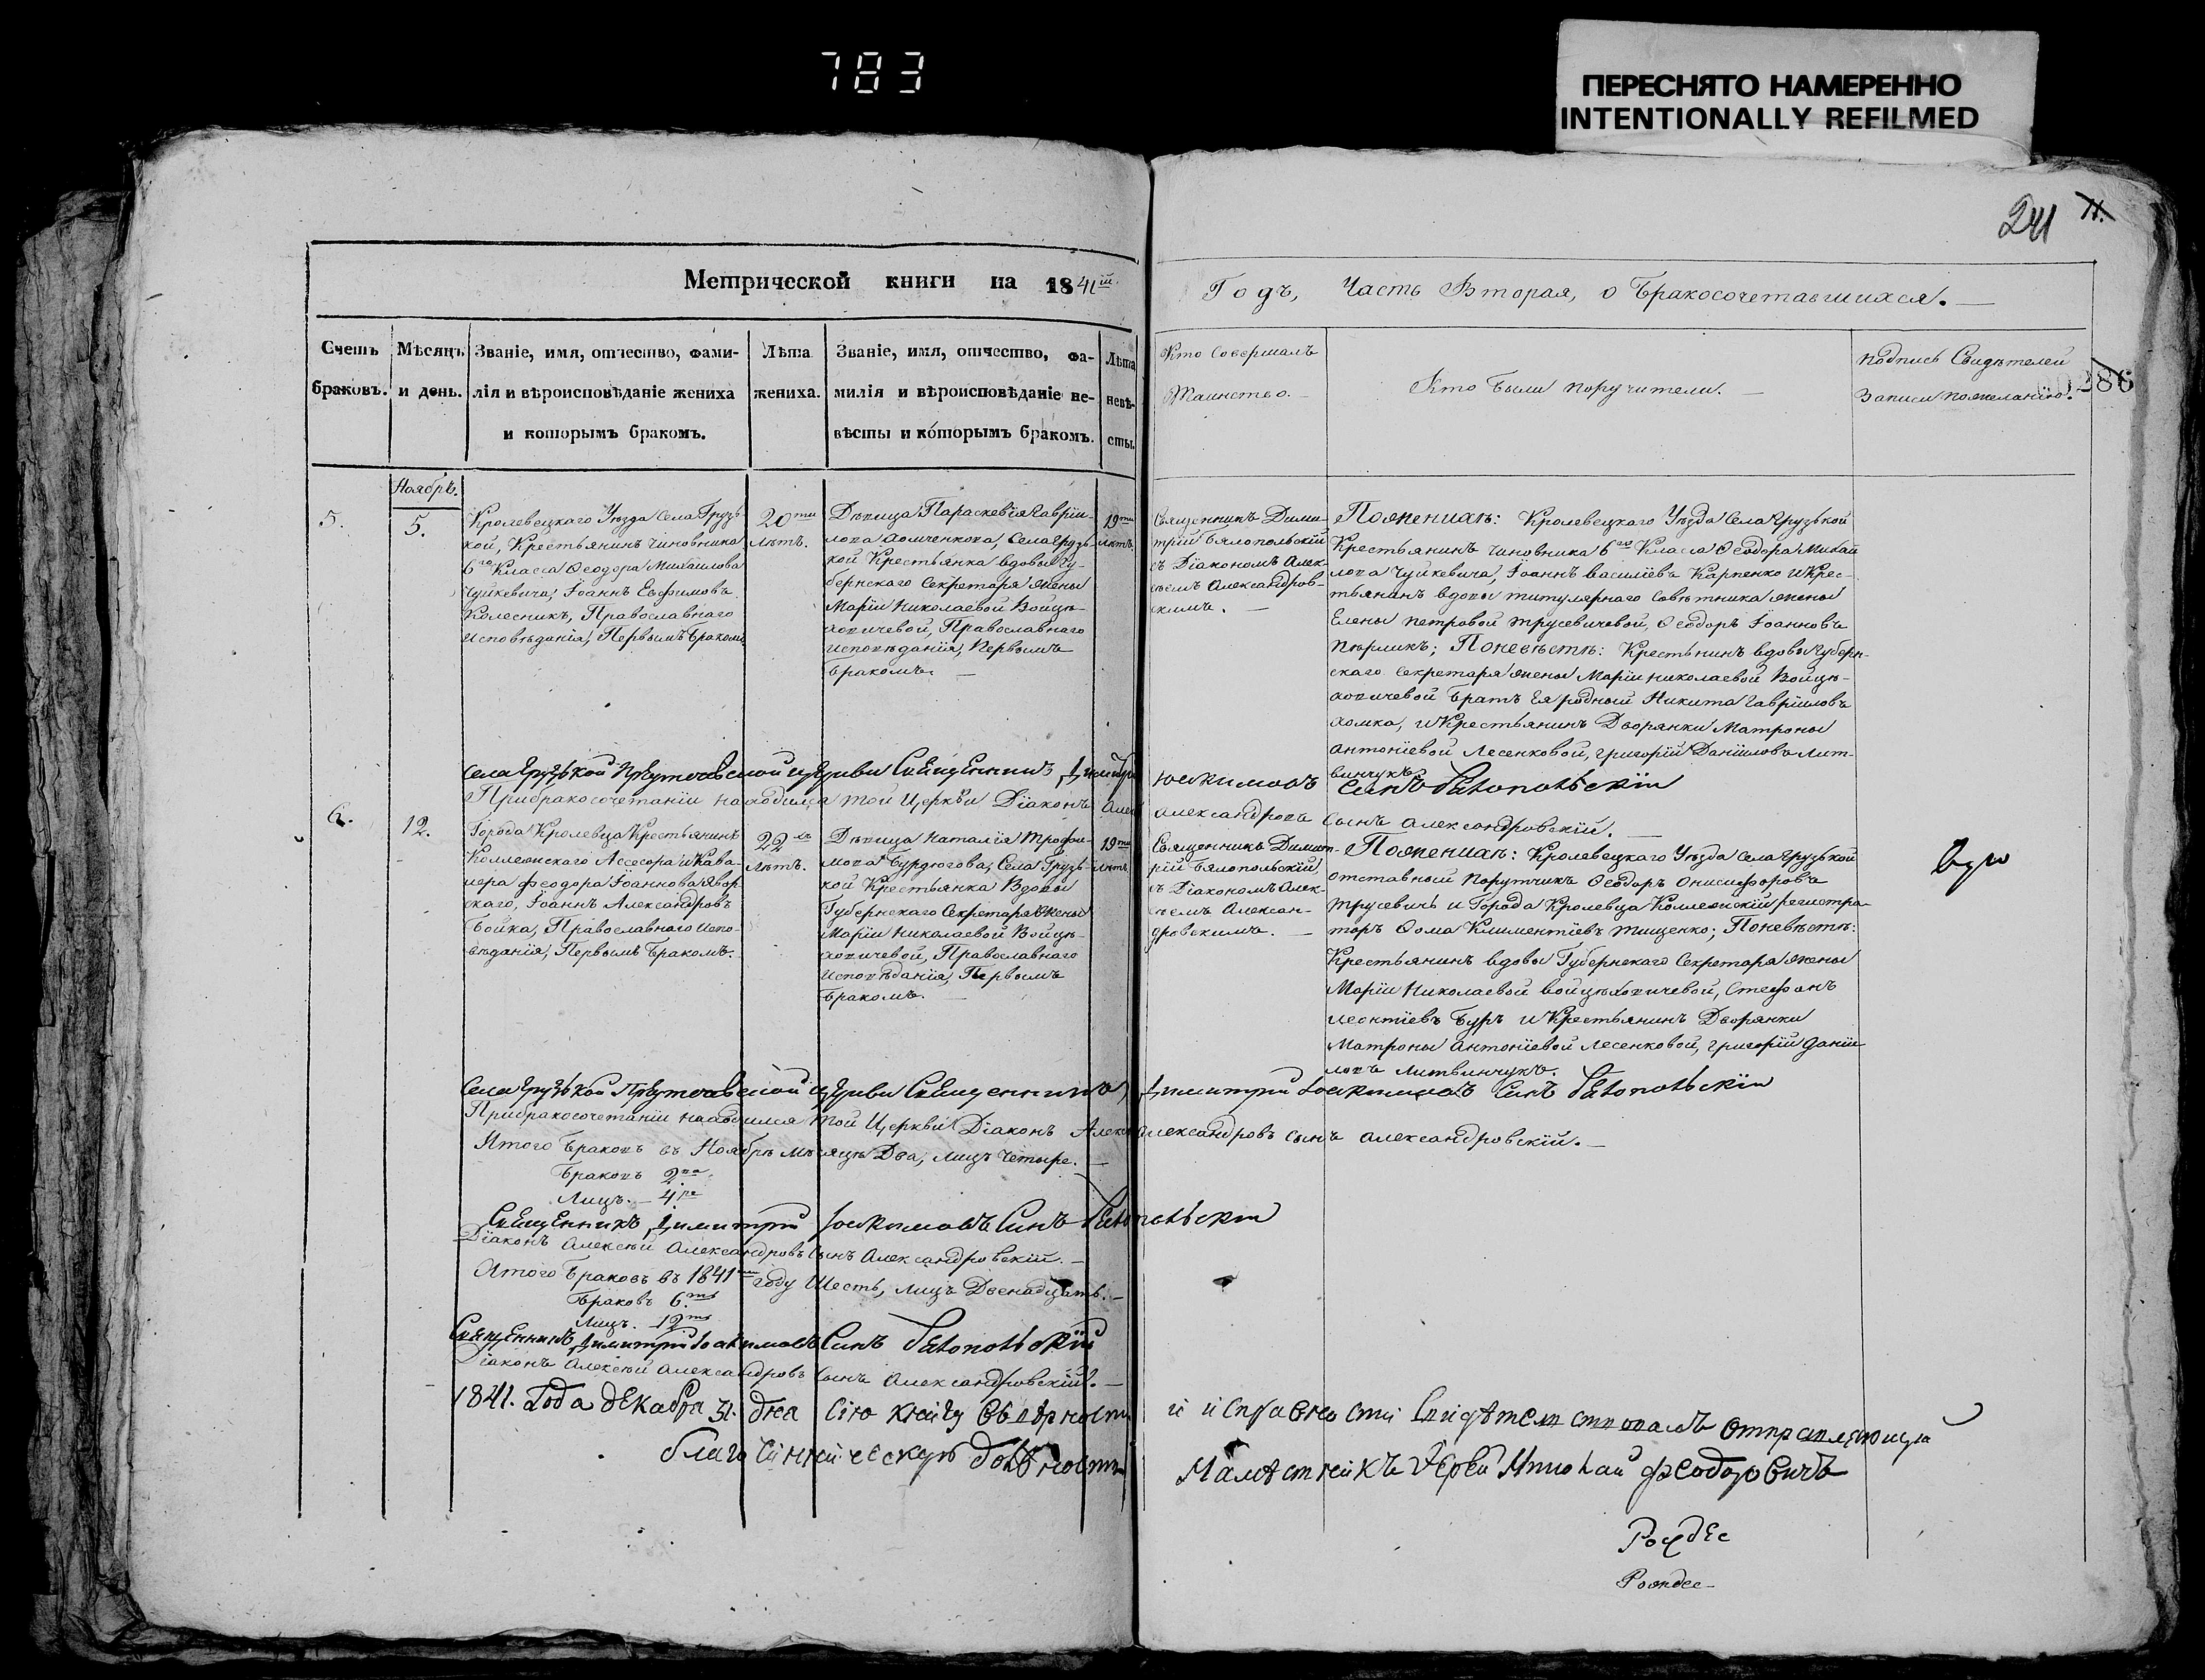 783
ПЕРЕСНЯТО НАМЕРЕННО
INTENTIONALLY REFILMED
241
11.
286
Метрической книги на 1841й
Годъ, Часть Вторая, о Бракосочетавшихся.
Счетъ браковъ.
Мѣсяцъ и день.
Званіе, имя, отчество, фами-
лія и вѣроисповѣданіе жениха
и которымъ бракомъ.
Лѣта
жениха.
Званіе, имя, отчество, фа-
милія и вѣроисповѣданіе не-
вѣсты и которымъ бракомъ.
Лѣта
невѣ-
сты.
Кто Совершалъ
Таинство.
Кто были поручители.
Подпись Свидѣтелей
Записи по желанію.
Ноябрь.
5.
5.
Кролевецкаго Уѣзда Села Грузь-
кой, Крестьянинъ Чиновника
6го Класса Ѳеодора Михаилова
Чуйкевича, Іоаннъ Евфимовъ
Колесникъ, Православнаго
Исповѣданія, Первымъ Бракомъ.
20ти
лѣтъ.
Дѣвица Параскевія Гавріи-
лова Хомченкова, Села Грузь-
кой Крестьянка вдовы Гу-
бернскаго Секретаря жены
Маріи Николаевой Войцѣ-
ховичевой, Православнаго
исповѣданія, Первымъ
Бракомъ.
19ти
лѣтъ.
Священникъ Дими-
трій Бялопольскій
съ Діакономъ Алек-
сѣемъ Александров-
скимъ.
Пожениху: Кролевецкаго Уѣзда Села Грузькой
Крестьянинъ Чиновника 6го Класса Ѳеодора Михаи-
лова Чуйкевича, Іоаннъ Василіевъ Карпенко и Крес-
тьянинъ вдовы титулярнаго Совѣтника жены
Елены Петровой Трусевичевой, Ѳеодоръ Іоанновъ
Поневѣстѣ: Крестьнинъ вдовы Губерн-
скаго Секретаря жены Маріи Николаевой Войцѣ-
ховичевой Братъ Ея родный Никита Гавріиловъ
Хомка, и Крестьянинъ Дворянки Матроны
Антоніевой Лесенковой, Григорій Даніиловъ Лит-
винчукъ.
Села Грузькой церкви Священникъ Димитрій Іоакимовъ Синъ Бѣлопольскій
При бракосочетаніи находился той Церкви Діаконъ Алексѣй Александровъ Сынъ Александровскій.
6.
12.
Города Кролевца Крестьянинъ
Коллежскаго Ассесора и Кава-
лера Феодора Іоаннова Явор-
скаго, Іоаннъ Александровъ
Бойка, Православнаго Испо-
вѣданія, Первымъ Бракомъ.
22хъ
лѣтъ.
Дѣвица Наталія Трофи-
мова Бурдюгова, Села Грузь-
кой Крестьянка Вдовы
Губернскаго Секретаря жены
Маріи Николаевой Войцѣ-
ховичевой, Православнаго
Исповѣданія, Первымъ
Бракомъ.
19ти
лѣтъ.
Священникъ Димит-
рій Бялопольскій,
съ Діакономъ Алек-
сѣемъ Алексан-
дровскимъ.
Пожениху: Кролевецкаго Уѣзда Села Грузькой
отставный Порутчикъ Ѳеодоръ Онисифоровъ
Трусевичь и Города Кролевца Коллежскій регистра-
торъ Ѳома Климентіевъ Тищенко; Поневѣстѣ:
Крестьянинъ вдовы Губернскаго Секретаря жены
Маріи Николаевой Войцѣховичевой, Стефанъ
Леонтіевъ Буръ и Крестьянинъ Дворянки
Матроны Антоніевой Лесенковой, Григорій Даніи-
ловъ Литвинчукъ.
Села Грузькой церкви Священникъ Димитрій Іоакимовъ Синъ Бѣлопольскій
При бракосочетаніи находился той Церкви Діаконъ Алексѣй Александровъ сынъ Александровскій.
Итого Браковъ въ Ноябрѣ Мѣсяцѣ Два, лицъ Четыре.
Браковъ 2ва
Лицъ. 4ре
Священникъ Димитрій Іоакимовъ Синъ Бѣлопольскій
Діаконъ Алексѣй Александровъ Сынъ Александровскій.
Итого Браковъ въ 1841мъ году Шесть, лицъ Двенадцать.
Браковъ 6ть
Лицъ. 12ть
Священникъ Димитрій Іоакимовъ Синъ Бѣлопольскій
Діаконъ Алексѣй Александровъ Сынъ Александровскій.
1841. Года декабря 31. дня Сію книгу въ вѣрности и исправности свидѣтельствовалъ отправляющій
Благочинническую должность Намѣстникъ Іерей Николай Феодоровичъ